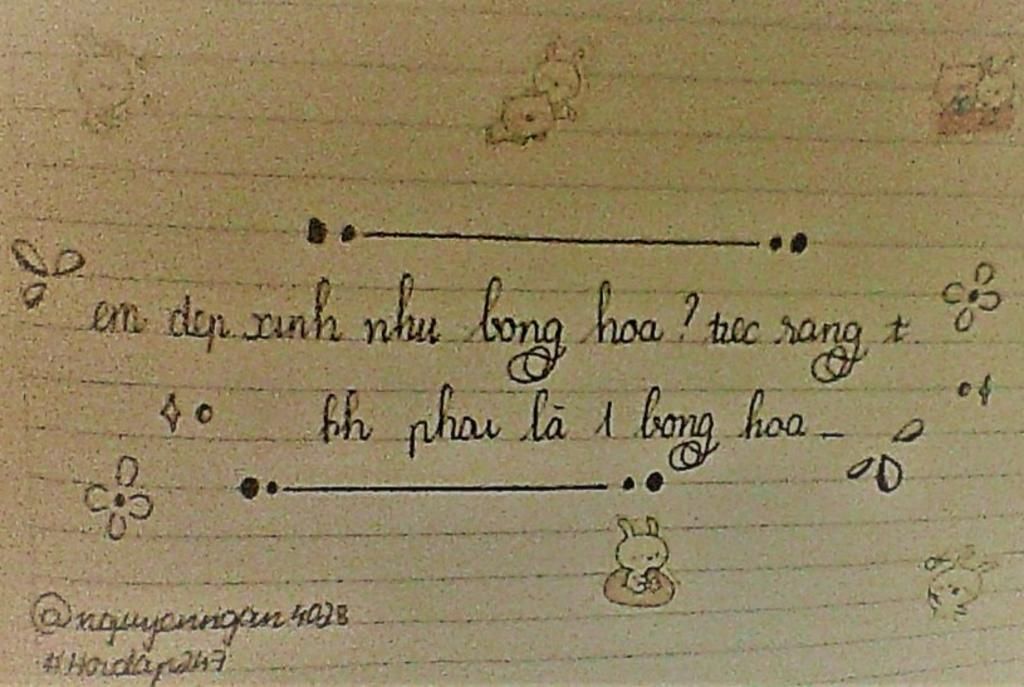 em dep xinh nhu bong hoa? tiec rang t.
kh phai là 1 bong hoa_
@nguyenngan4028
#Hoidap247